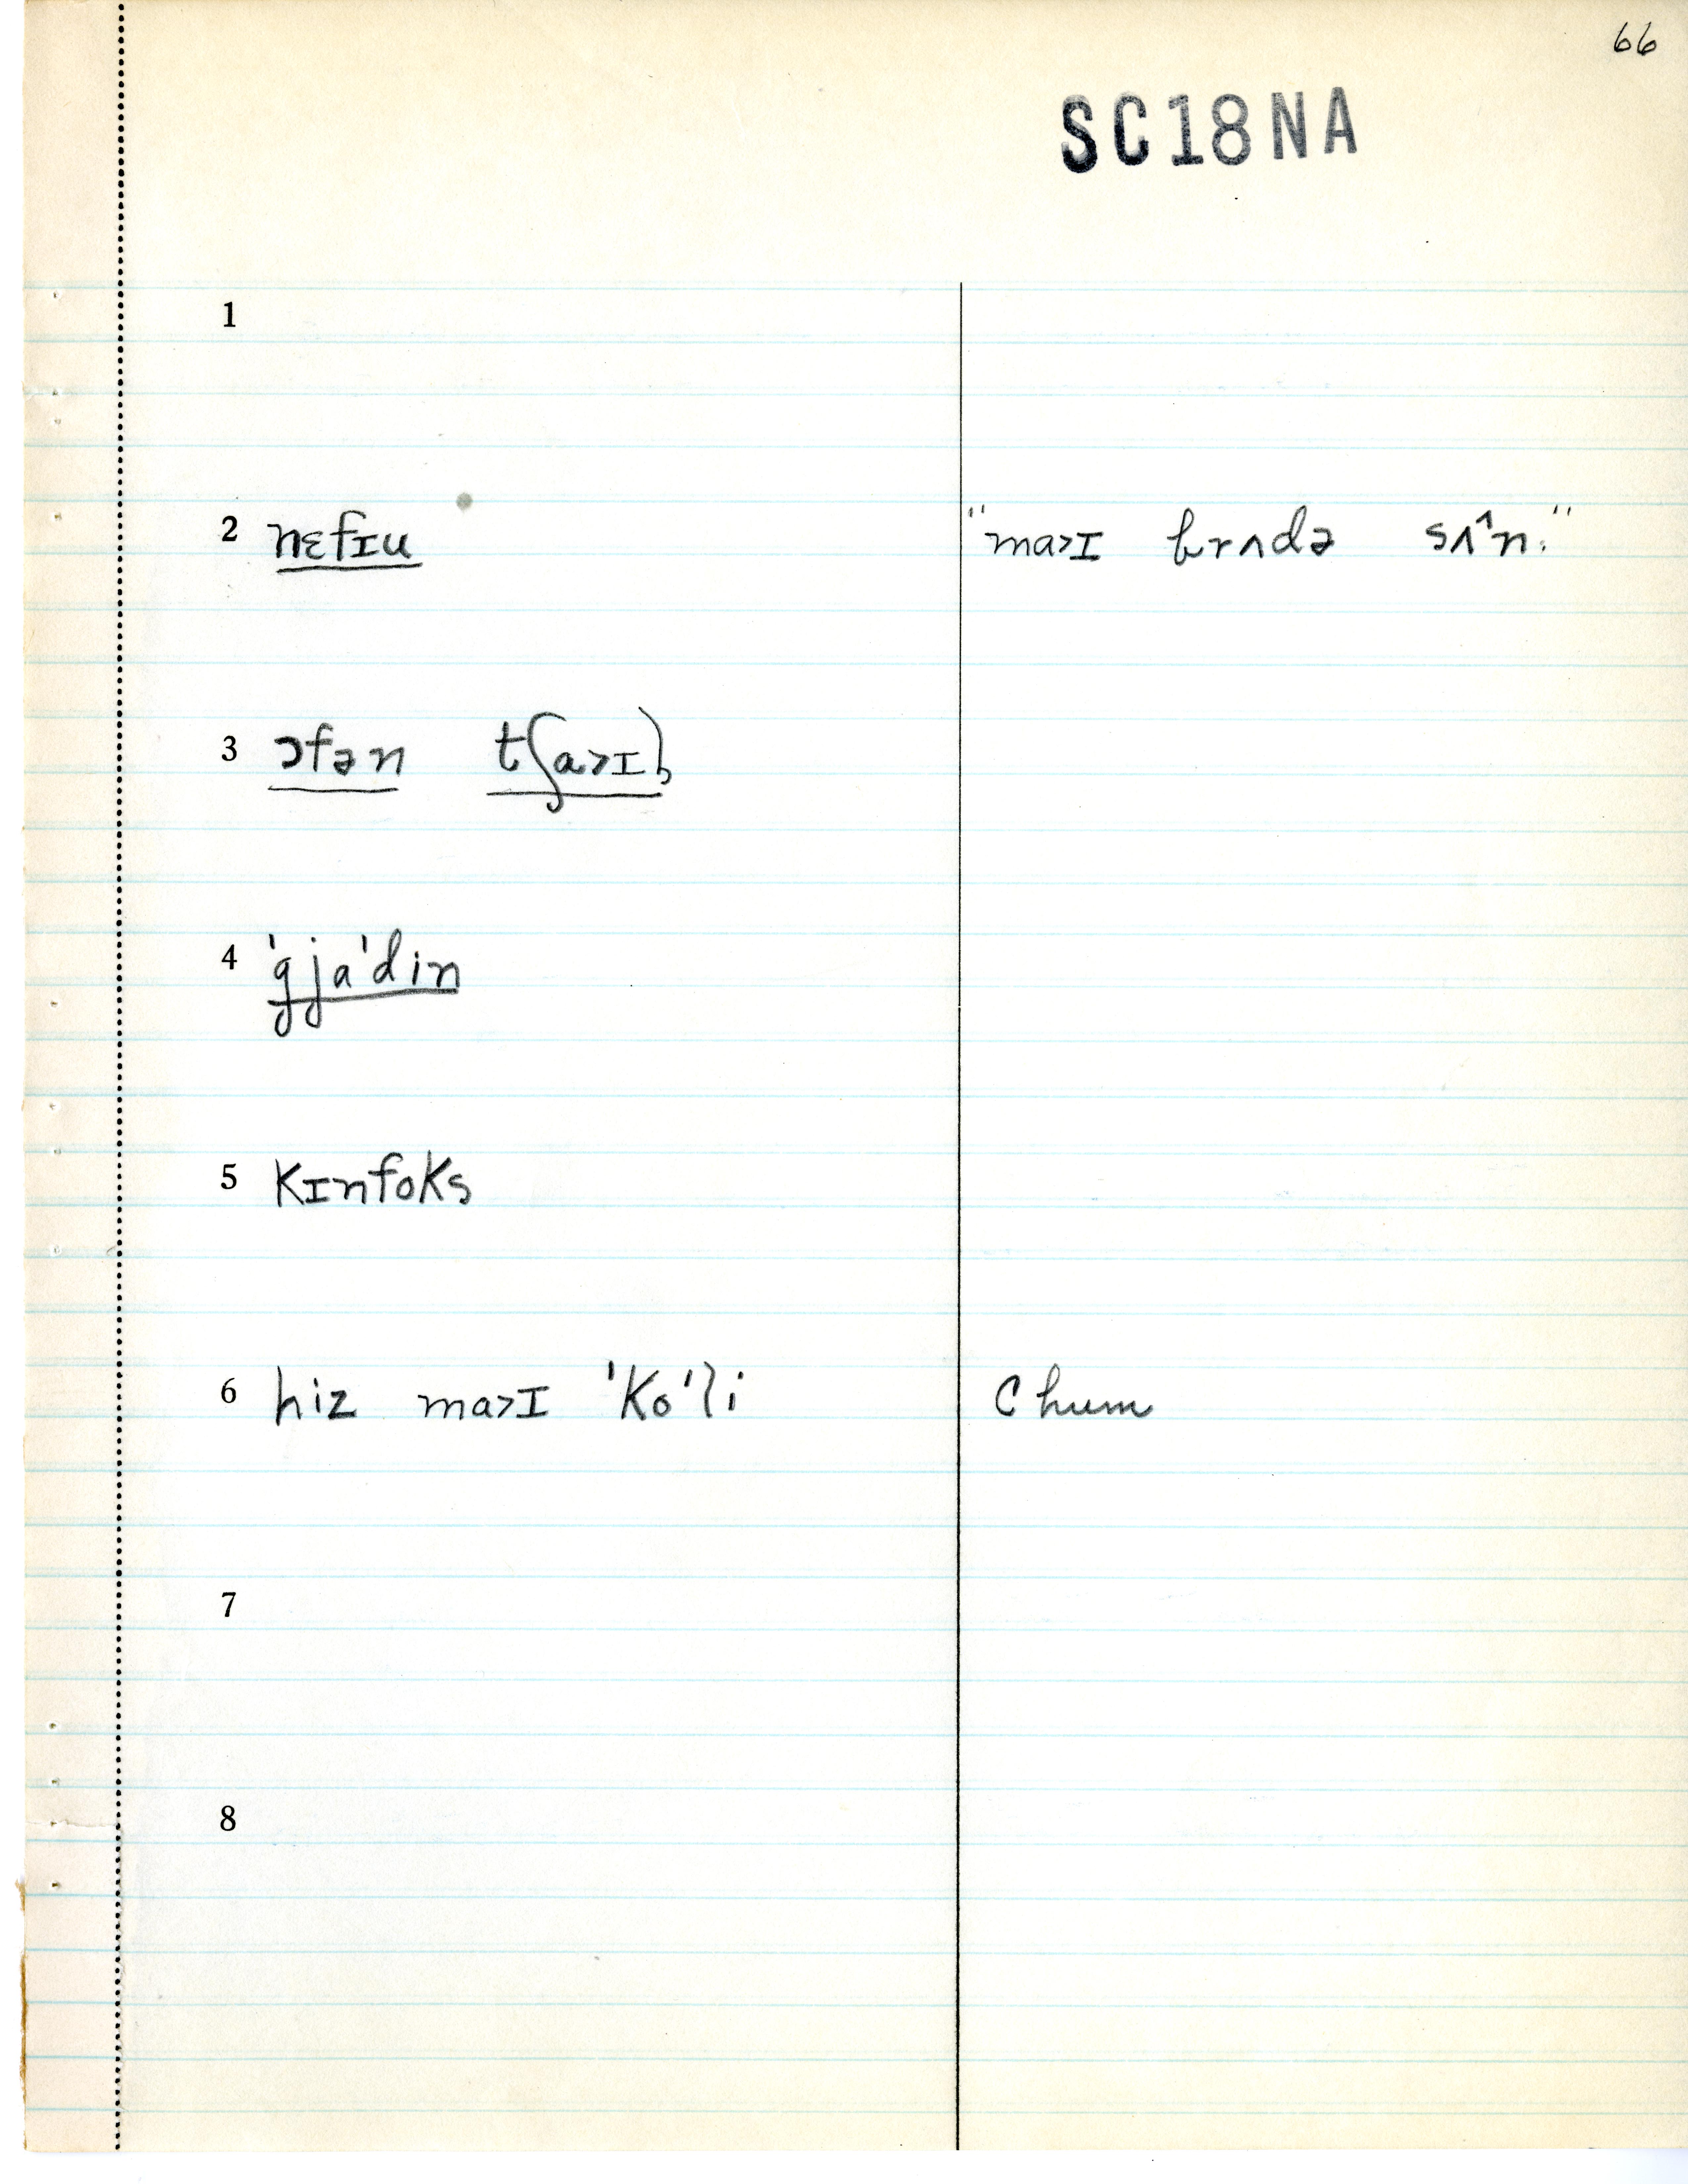 66
SC18NA
1
2 nɛfɪu "ma>ɪ brʌdə sʌ^n."
3 ɔfən tʃa>ɪl
4 'gja'din
5 kɪnfoks
6 hiz ma>ɪ 'ko'li Chum
7
8